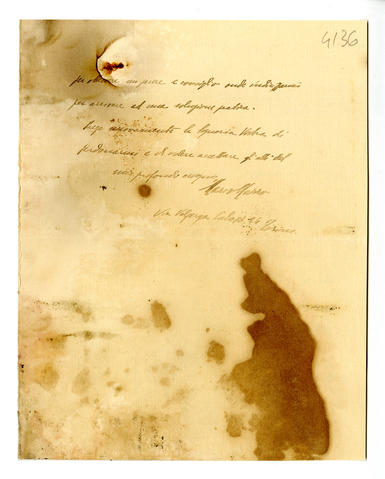 4136
per ottenere un parere e consiglio onde indirizzarmi
per arrivare ad una soluzione pratica.
Prego nuovamente la Signoria Vostra di
perdonarmi e di volere accettare gli atti del
mio profondo ossequio
Via Valperga Caluso 24 Torino